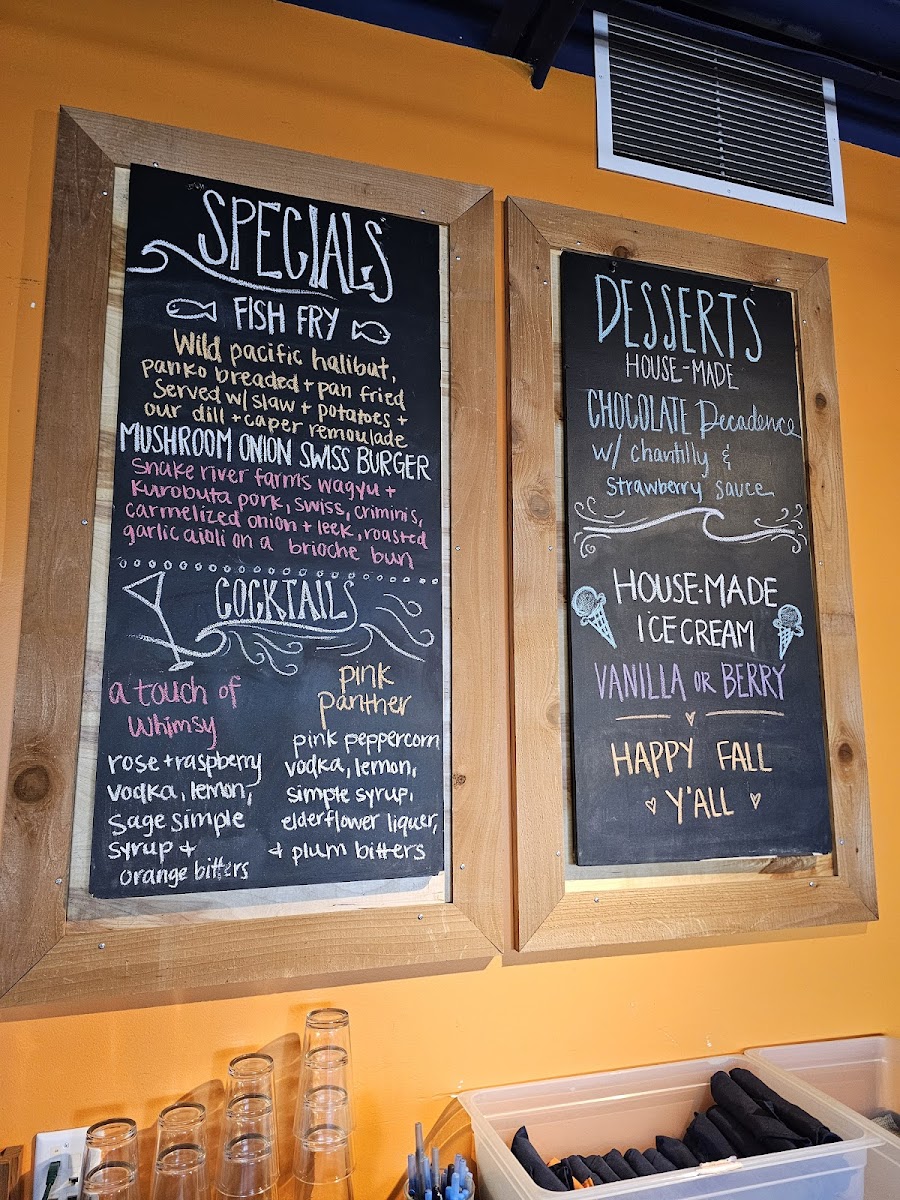 SPECIALS
FISH FRY
Wild pacific halibut,
panko breaded + pan fried
Served w/ slaw + potatoes +
our dill + caper remoulade
MUSHROOM ONION SWISS BURGER
Snake river farms wagyu +
Kurobuta pork, swiss, criminis,
carmelized onion + leek, roasted
garlic aioli on a brioche bun
COCKTAILS
a touch of
whimsy
rose + raspberry
vodka, lemon,
sage simple
syrup +
orange bitters
pink
panther
pink peppercorn
vodka, lemon,
simple syrup,
elderflower liquer,
+ plum bitters
DESSERTS
HOUSE-MADE
CHOCOLATE Decadence
w/ chantilly &
strawberry sauce
HOUSE-MADE
ICE CREAM
VANILLA OR BERRY
HAPPY FALL
Y'ALL